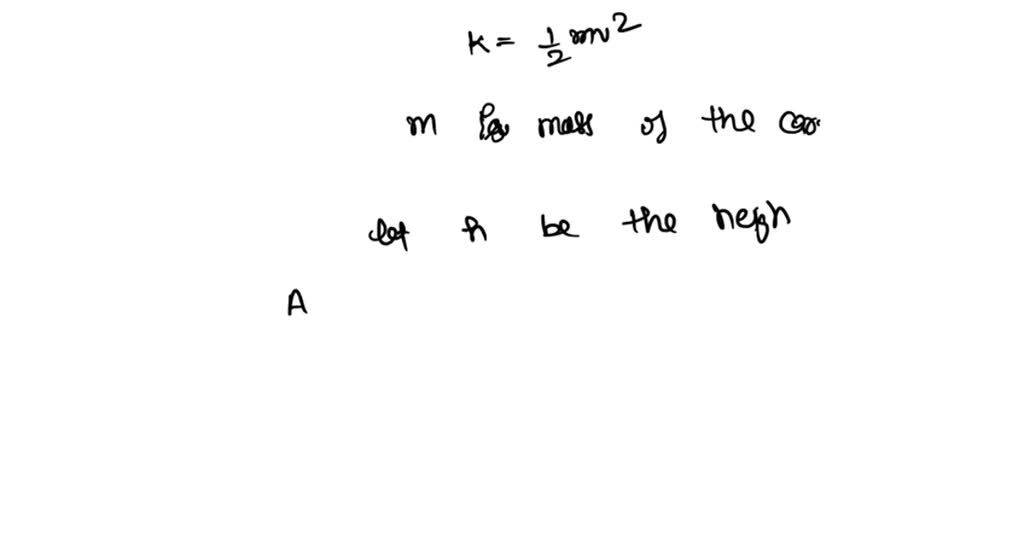 K = 1/2 mv²
m is mass of the car
let h be the heigh
A